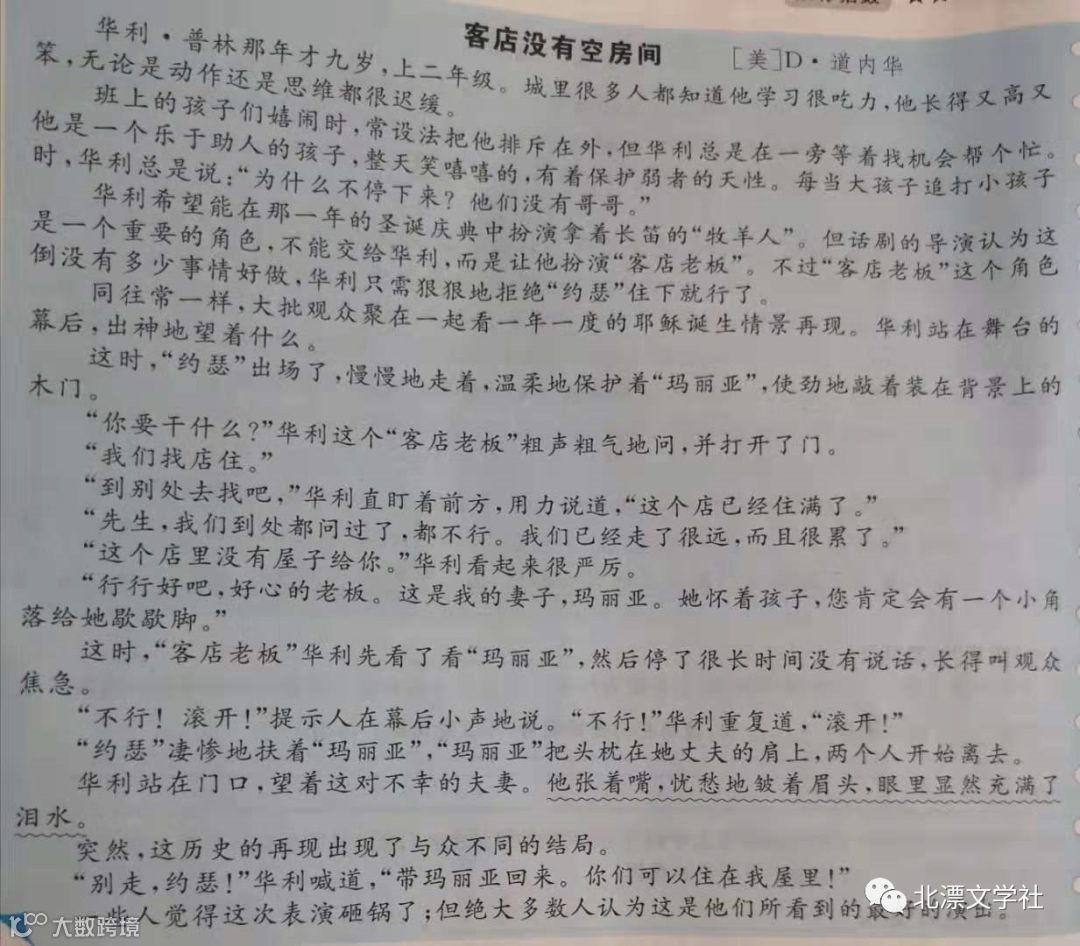 客店没有空房间
[美]D·道内华
华利·普林那年才九岁,上二年级。城里很多人都知道他学习很吃力,他长得又高又
笨,无论是动作还是思维都很迟缓。
班上的孩子们嬉闹时,常设法把他排斥在外,但华利总是在一旁等着找机会帮个忙。
他是一个乐于助人的孩子,整天笑嘻嘻的,有着保护弱者的天性。每当大孩子追打小孩子
时,华利总是说:“为什么不停下来?他们没有哥哥。”
华利希望能在那一年的圣诞庆典中扮演拿着长笛的“牧羊人”。但话剧的导演认为这
是一个重要的角色,不能交给华利,而是让他扮演“客店老板”。不过“客店老板”这个角色
倒没有多少事情好做,华利只需狠狠地拒绝“约瑟”住下就行了。
同往常一样,大批观众聚在一起看一年一度的耶稣诞生情景再现。华利站在舞台的
幕后,出神地望着什么。
这时,“约瑟”出场了,慢慢地走着,温柔地保护着“玛丽亚”,使劲地敲着装在背景上的
木门。
“你要干什么?”华利这个“客店老板”粗声粗气地问,并打开了门。
“我们找店住。”
“到别处去找吧,”华利直盯着前方,用力说道,“这个店已经住满了。”
“先生,我们到处都问过了,都不行。我们已经走了很远,而且很累了。”
“这个店里没有屋子给你。”华利看起来很严厉。
“行行好吧,好心的老板。这是我的妻子,玛丽亚。她怀着孩子,您肯定会有一个小角
落给她歇歇脚。”
这时,“客店老板”华利先看了看“玛丽亚”,然后停了很长时间没有说话,长得叫观众
焦急。
“不行!滚开!”提示人在幕后小声地说。“不行!”华利重复道,“滚开!”
“约瑟”凄惨地扶着“玛丽亚”,“玛丽亚”把头枕在她丈夫的肩上,两个人开始离去。
华利站在门口,望着这对不幸的夫妻。他张着嘴,忧愁地皱着眉头,眼里显然充满了
泪水。
突然,这历史的再现出现了与众不同的结局。
“别走,约瑟!”华利喊道,“带玛丽亚回来。你们可以住在我屋里!”
一些人觉得这次表演砸锅了;但绝大多数人认为这是他们所看到的最好的演出。
北漂文学社
大数跨境